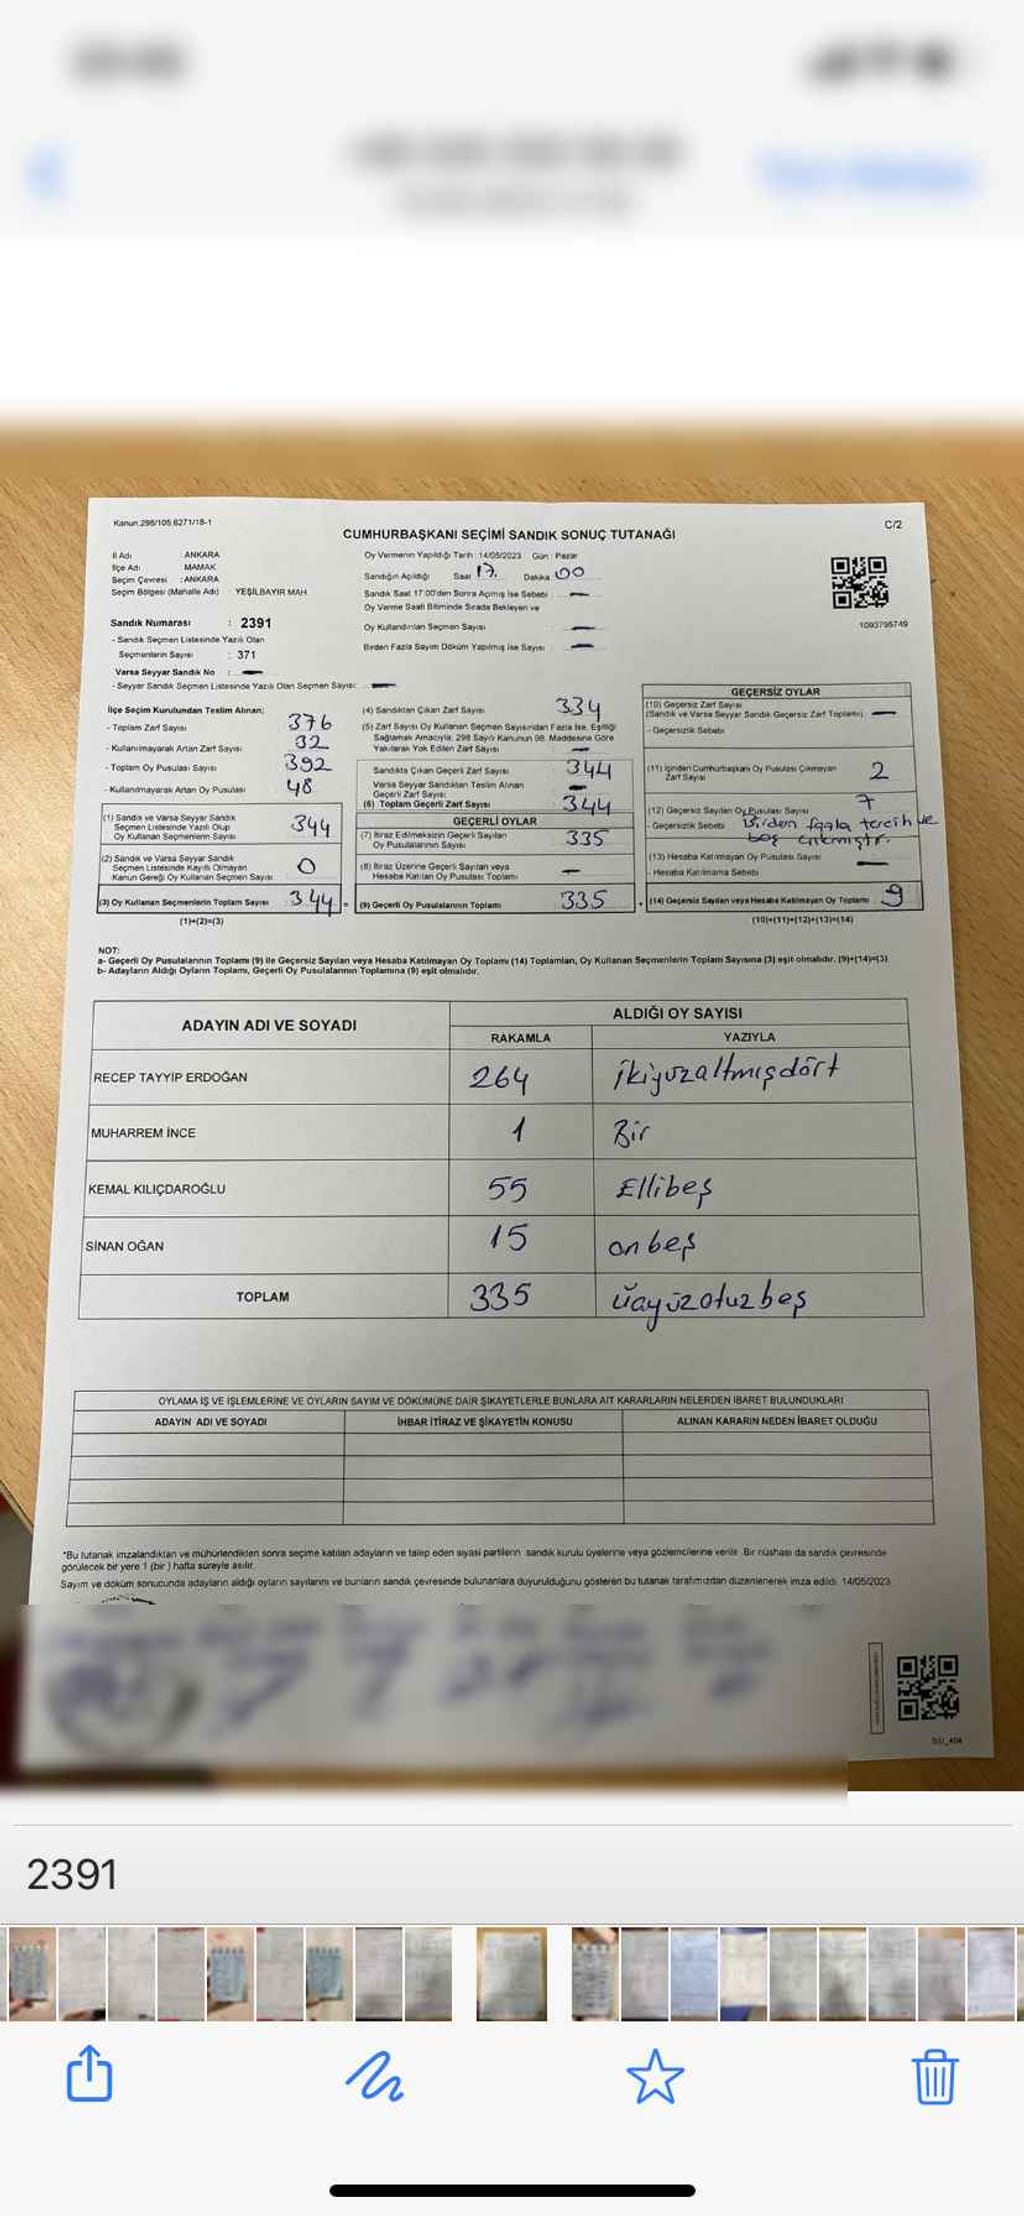 Kanun.298/105.6271/18-1
C/2
CUMHURBAŞKANI SEÇİMİ SANDIK SONUÇ TUTANAĞI
İl Adı : ANKARA
İlçe Adı : MAMAK
Seçim Çevresi : ANKARA
Seçim Bölgesi (Mahalle Adı) : YEŞİLBAYIR MAH.
Sandık Numarası : 2391
- Sandık Seçmen Listesinde Yazılı Olan
Seçmenlerin Sayısı : 371
Varsa Seyyar Sandık No : —
- Seyyar Sandık Seçmen Listesinde Yazılı Olan Seçmen Sayısı: —
Oy Vermenin Yapıldığı Tarih : 14/05/2023 Gün : Pazar
Sandığın Açıldığı Saat 17. Dakika 00
Sandık Saat 17:00'den Sonra Açılmış İse Sebebi : —
Oy Verme Saati Bitiminde Sırada Bekleyen ve
Oy Kullandırılan Seçmen Sayısı : —
Birden Fazla Sayım Döküm Yapılmış İse Sayısı : —
1093795749
İlçe Seçim Kurulundan Teslim Alınan:
- Toplam Zarf Sayısı 376
- Kullanılmayarak Artan Zarf Sayısı 32
- Toplam Oy Pusulası Sayısı 392
- Kullanılmayarak Artan Oy Pusulası 48
(1) Sandık ve Varsa Seyyar Sandık
Seçmen Listesinde Yazılı Olup
Oy Kullanan Seçmenlerin Sayısı 344
(2) Sandık ve Varsa Seyyar Sandık
Seçmen Listesinde Kayıtlı Olmayan
Kanun Gereği Oy Kullanan Seçmen Sayısı 0
(3) Oy Kullanan Seçmenlerin Toplam Sayısı 344 =
(1)+(2)=(3)
(4) Sandıktan Çıkan Zarf Sayısı 334
(5) Zarf Sayısı Oy Kullanan Seçmen Sayısından Fazla İse, Eşitliği
Sağlamak Amacıyla, 298 Sayılı Kanunun 98. Maddesine Göre
Yakılarak Yok Edilen Zarf Sayısı —
Sandıkta Çıkan Geçerli Zarf Sayısı 344
Varsa Seyyar Sandıktan Teslim Alınan
Geçerli Zarf Sayısı —
(6) Toplam Geçerli Zarf Sayısı 344
GEÇERLİ OYLAR
(7) İtiraz Edilmeksizin Geçerli Sayılan
Oy Pusulalarının Sayısı 335
(8) İtiraz Üzerine Geçerli Sayılan veya
Hesaba Katılan Oy Pusulası Toplamı —
(9) Geçerli Oy Pusulalarının Toplamı 335
GEÇERSİZ OYLAR
(10) Geçersiz Zarf Sayısı
(Sandık ve Varsa Seyyar Sandık Geçersiz Zarf Toplamı) —
- Geçersizlik Sebebi
(11) İçinden Cumhurbaşkanı Oy Pusulası Çıkmayan
Zarf Sayısı 2
(12) Geçersiz Sayılan Oy Pusulası Sayısı 7
- Geçersizlik Sebebi Birden fazla tercih ve
boş çıkmıştır.
(13) Hesaba Katılmayan Oy Pusulası Sayısı —
- Hesaba Katılmama Sebebi
(14) Geçersiz Sayılan veya Hesaba Katılmayan Oy Toplamı 9
(10)+(11)+(12)+(13)=(14)
NOT:
a- Geçerli Oy Pusulalarının Toplamı (9) ile Geçersiz Sayılan veya Hesaba Katılmayan Oy Toplamı (14) Toplamları, Oy Kullanan Seçmenlerin Toplam Sayısına (3) eşit olmalıdır. (9)+(14)=(3)
b- Adayların Aldığı Oyların Toplamı, Geçerli Oy Pusulalarının Toplamına (9) eşit olmalıdır.
ADAYIN ADI VE SOYADI
ALDIĞI OY SAYISI
RAKAMLA YAZIYLA
RECEP TAYYİP ERDOĞAN 264 ikiyüzaltmışdört
MUHARREM İNCE 1 Bir
KEMAL KILIÇDAROĞLU 55 Ellibeş
SİNAN OĞAN 15 onbeş
TOPLAM 335 üçyüzotuzbeş
OYLAMA İŞ VE İŞLEMLERİNE VE OYLARIN SAYIM VE DÖKÜMÜNE DAİR ŞİKAYETLERLE BUNLARA AİT KARARLARIN NELERDEN İBARET BULUNDUKLARI
ADAYIN ADI VE SOYADI İHBAR İTİRAZ VE ŞİKAYETİN KONUSU ALINAN KARARIN NEDEN İBARET OLDUĞU
*Bu tutanak imzalandıktan ve mühürlendikten sonra seçime katılan adayların ve talep eden siyasi partilerin sandık kurulu üyelerine veya gözlemcilerine verilir. Bir nüshası da sandık çevresinde
görülecek bir yere 1 (bir) hafta süreyle asılır.
Sayım ve döküm sonucunda adayların aldığı oyların sayılarını ve bunların sandık çevresinde bulunanlara duyurulduğunu gösteren bu tutanak tarafımızdan düzenlenerek imza edildi. 14/05/2023
2391